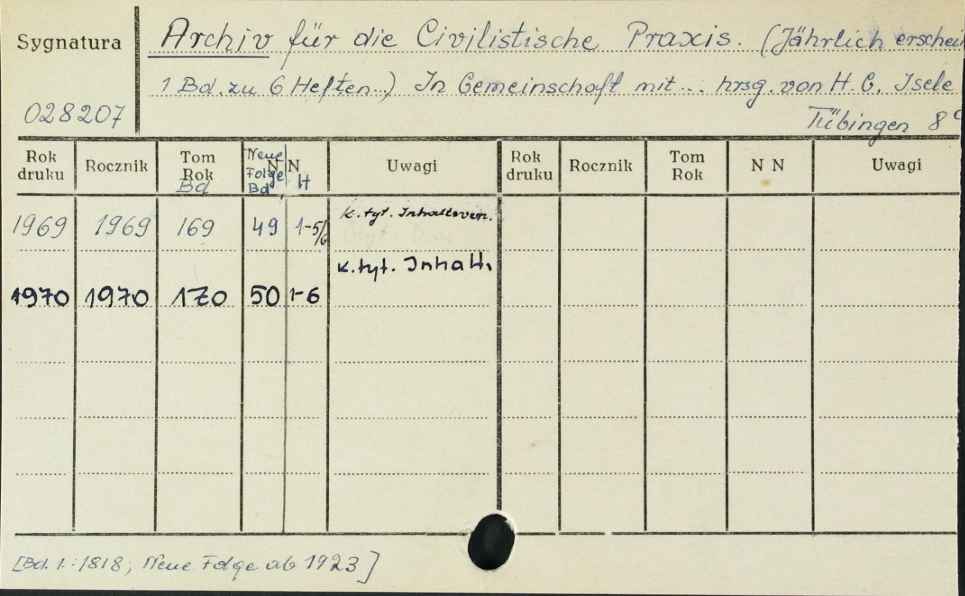 Sygnatura
Archiv für die Civilistische Praxis. (Jährlich erschei
1 Bd. zu 6 Heften..) In Gemeinschaft mit... hrsg. von H. G. Isele
028207
Tübingen 8°
Rok druku Rocznik Tom Rok Bd Neue Folge Bd N N H Uwagi Rok druku Rocznik Tom Rok N N Uwagi
1969 1969 169 49 1-5/6 k. tyt. Inhaltsverz.
k. tyt. Inhalt.
1970 1970 170 50 1-6
[Bd. 1.: 1818; Neue Folge ab 1923]